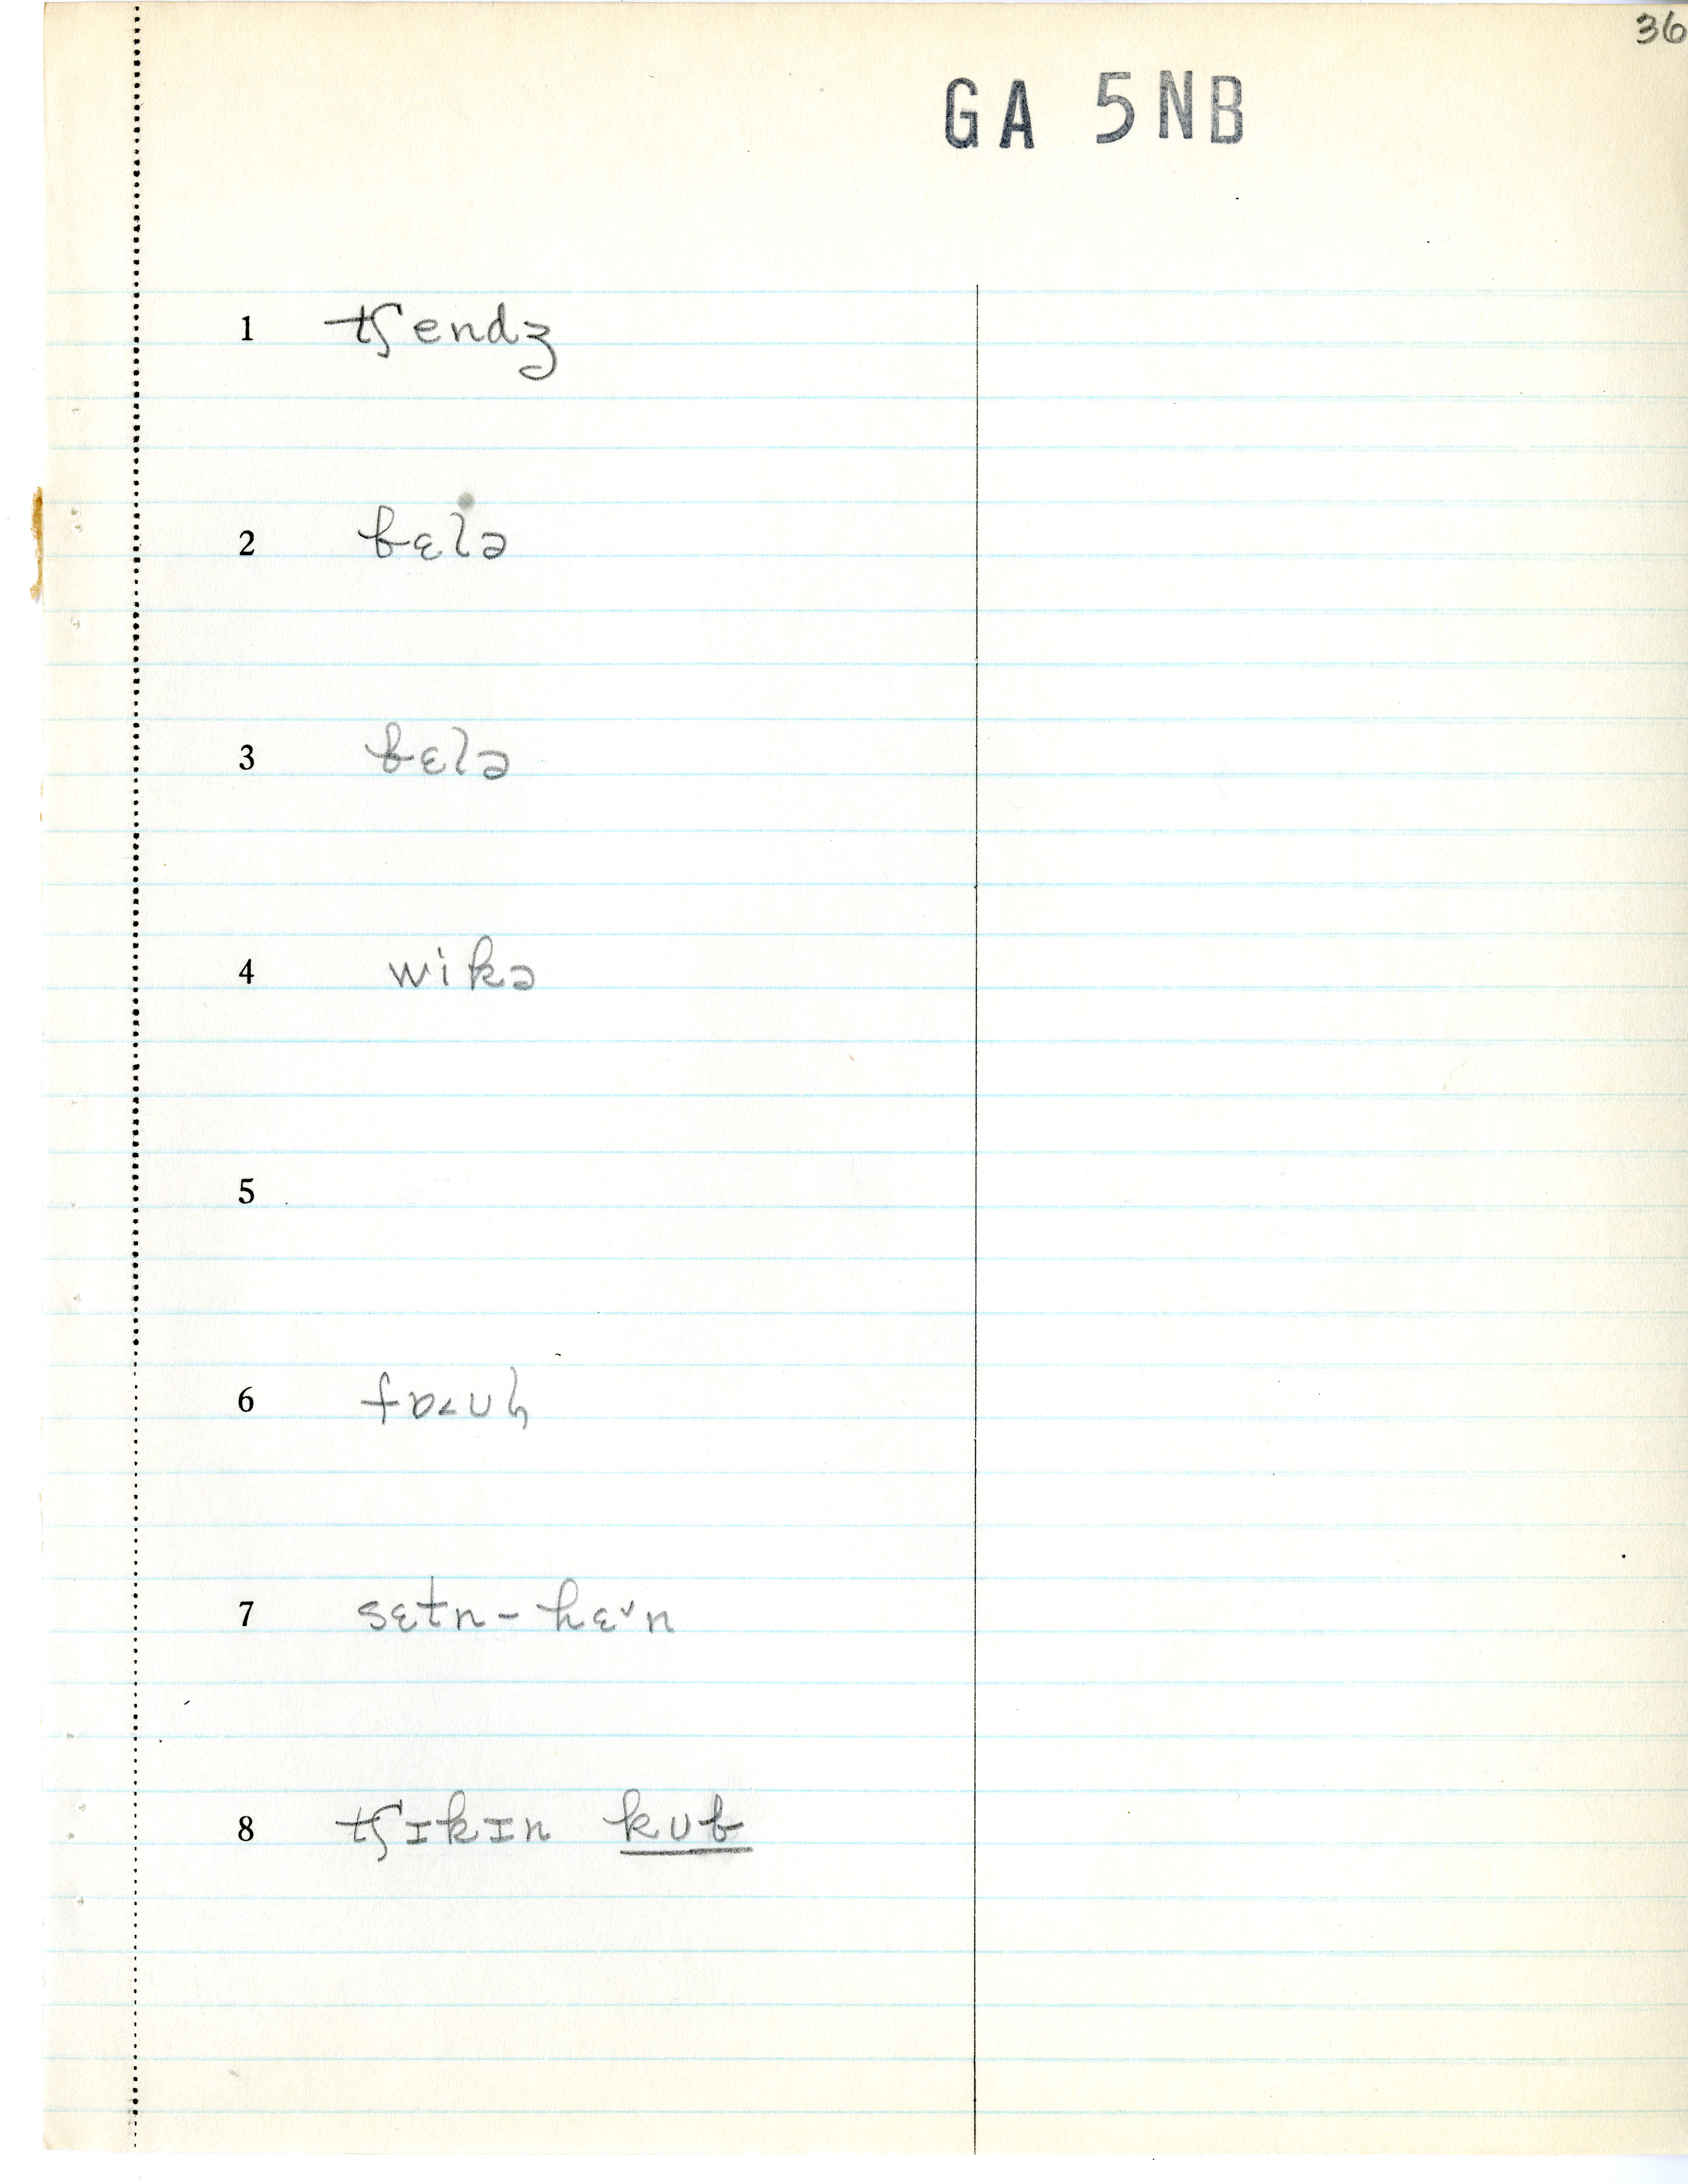 36
GA 5NB
1 tʃendʒ
2 bɛlə
3 bɛlə
4 wikə
5
6
7 sɛtn - hɛ˅n
8 tʃɪkɪn kub